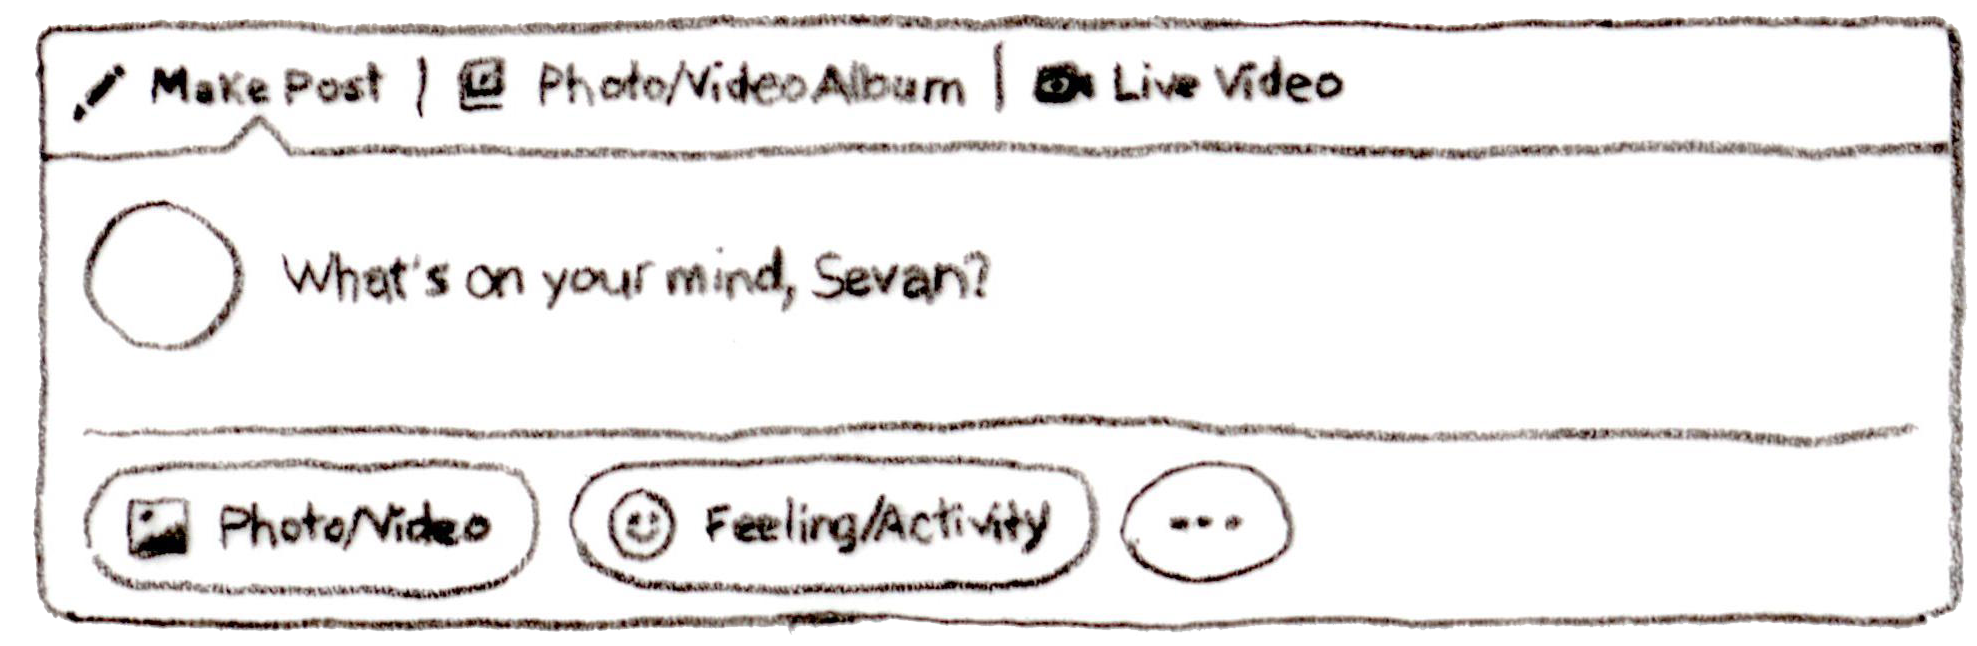 Make Post | Photo/Video Album | Live Video
What's on your mind, Sevan?
Photo/Video Feeling/Activity ...